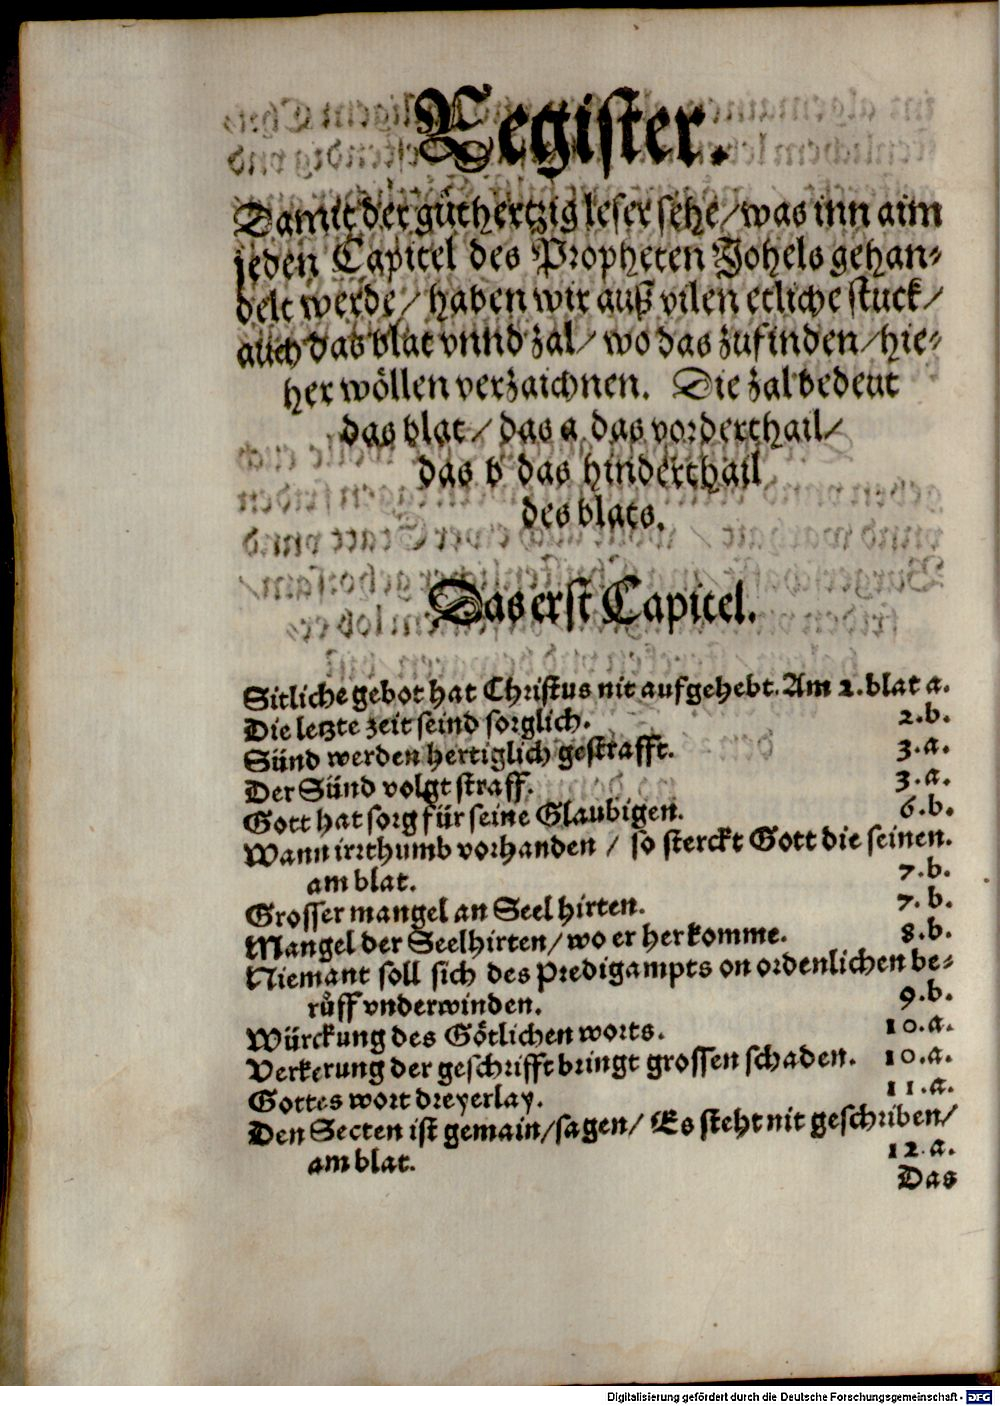 Register.
Damit der gůthertzig leser sehe/ was inn aim
jeden Capitel des Propheten Johels gehan-
delt werde/ haben wir auß vilen etliche stuck/
auch das blat vnnd zal/ wo das zufinden/ hie-
her wöllen verzaichnen. Die zal bedeut
das blat/ das a das vorderthail/
das b das hinderthail
des blats.
Das erst Capitel.
Sitliche gebot hat Christus nit aufgehebt. Am 2. blat a.
Die letzte zeit seind sorglich. 2.b.
Sünd werden hertiglich gestrafft. 3.a.
Der Sünd volgt straff. 3.a.
Gott hat sorg für seine Glaubigen. 6.b.
Wann irrthumb vorhanden / so sterckt Gott die seinen.
am blat. 7.b.
Grosser mangel an Seel hirten. 7.b.
Mangel der Seelhirten/ wo er her komme. 8.b.
Niemant soll sich des Predigampts on ordenlichen be-
růff vnderwinden. 9.b.
Würckung des Götlichen worts. 10.a.
Verkerung der geschrifft bringt grossen schaden. 10.a.
Gottes wort dreyerlay. 11.a.
Den Secten ist gemain/ sagen/ Es steht nit geschriben/
am blat. 12.a.
Das
Digitalisierung gefördert durch die Deutsche Forschungsgemeinschaft - DFG